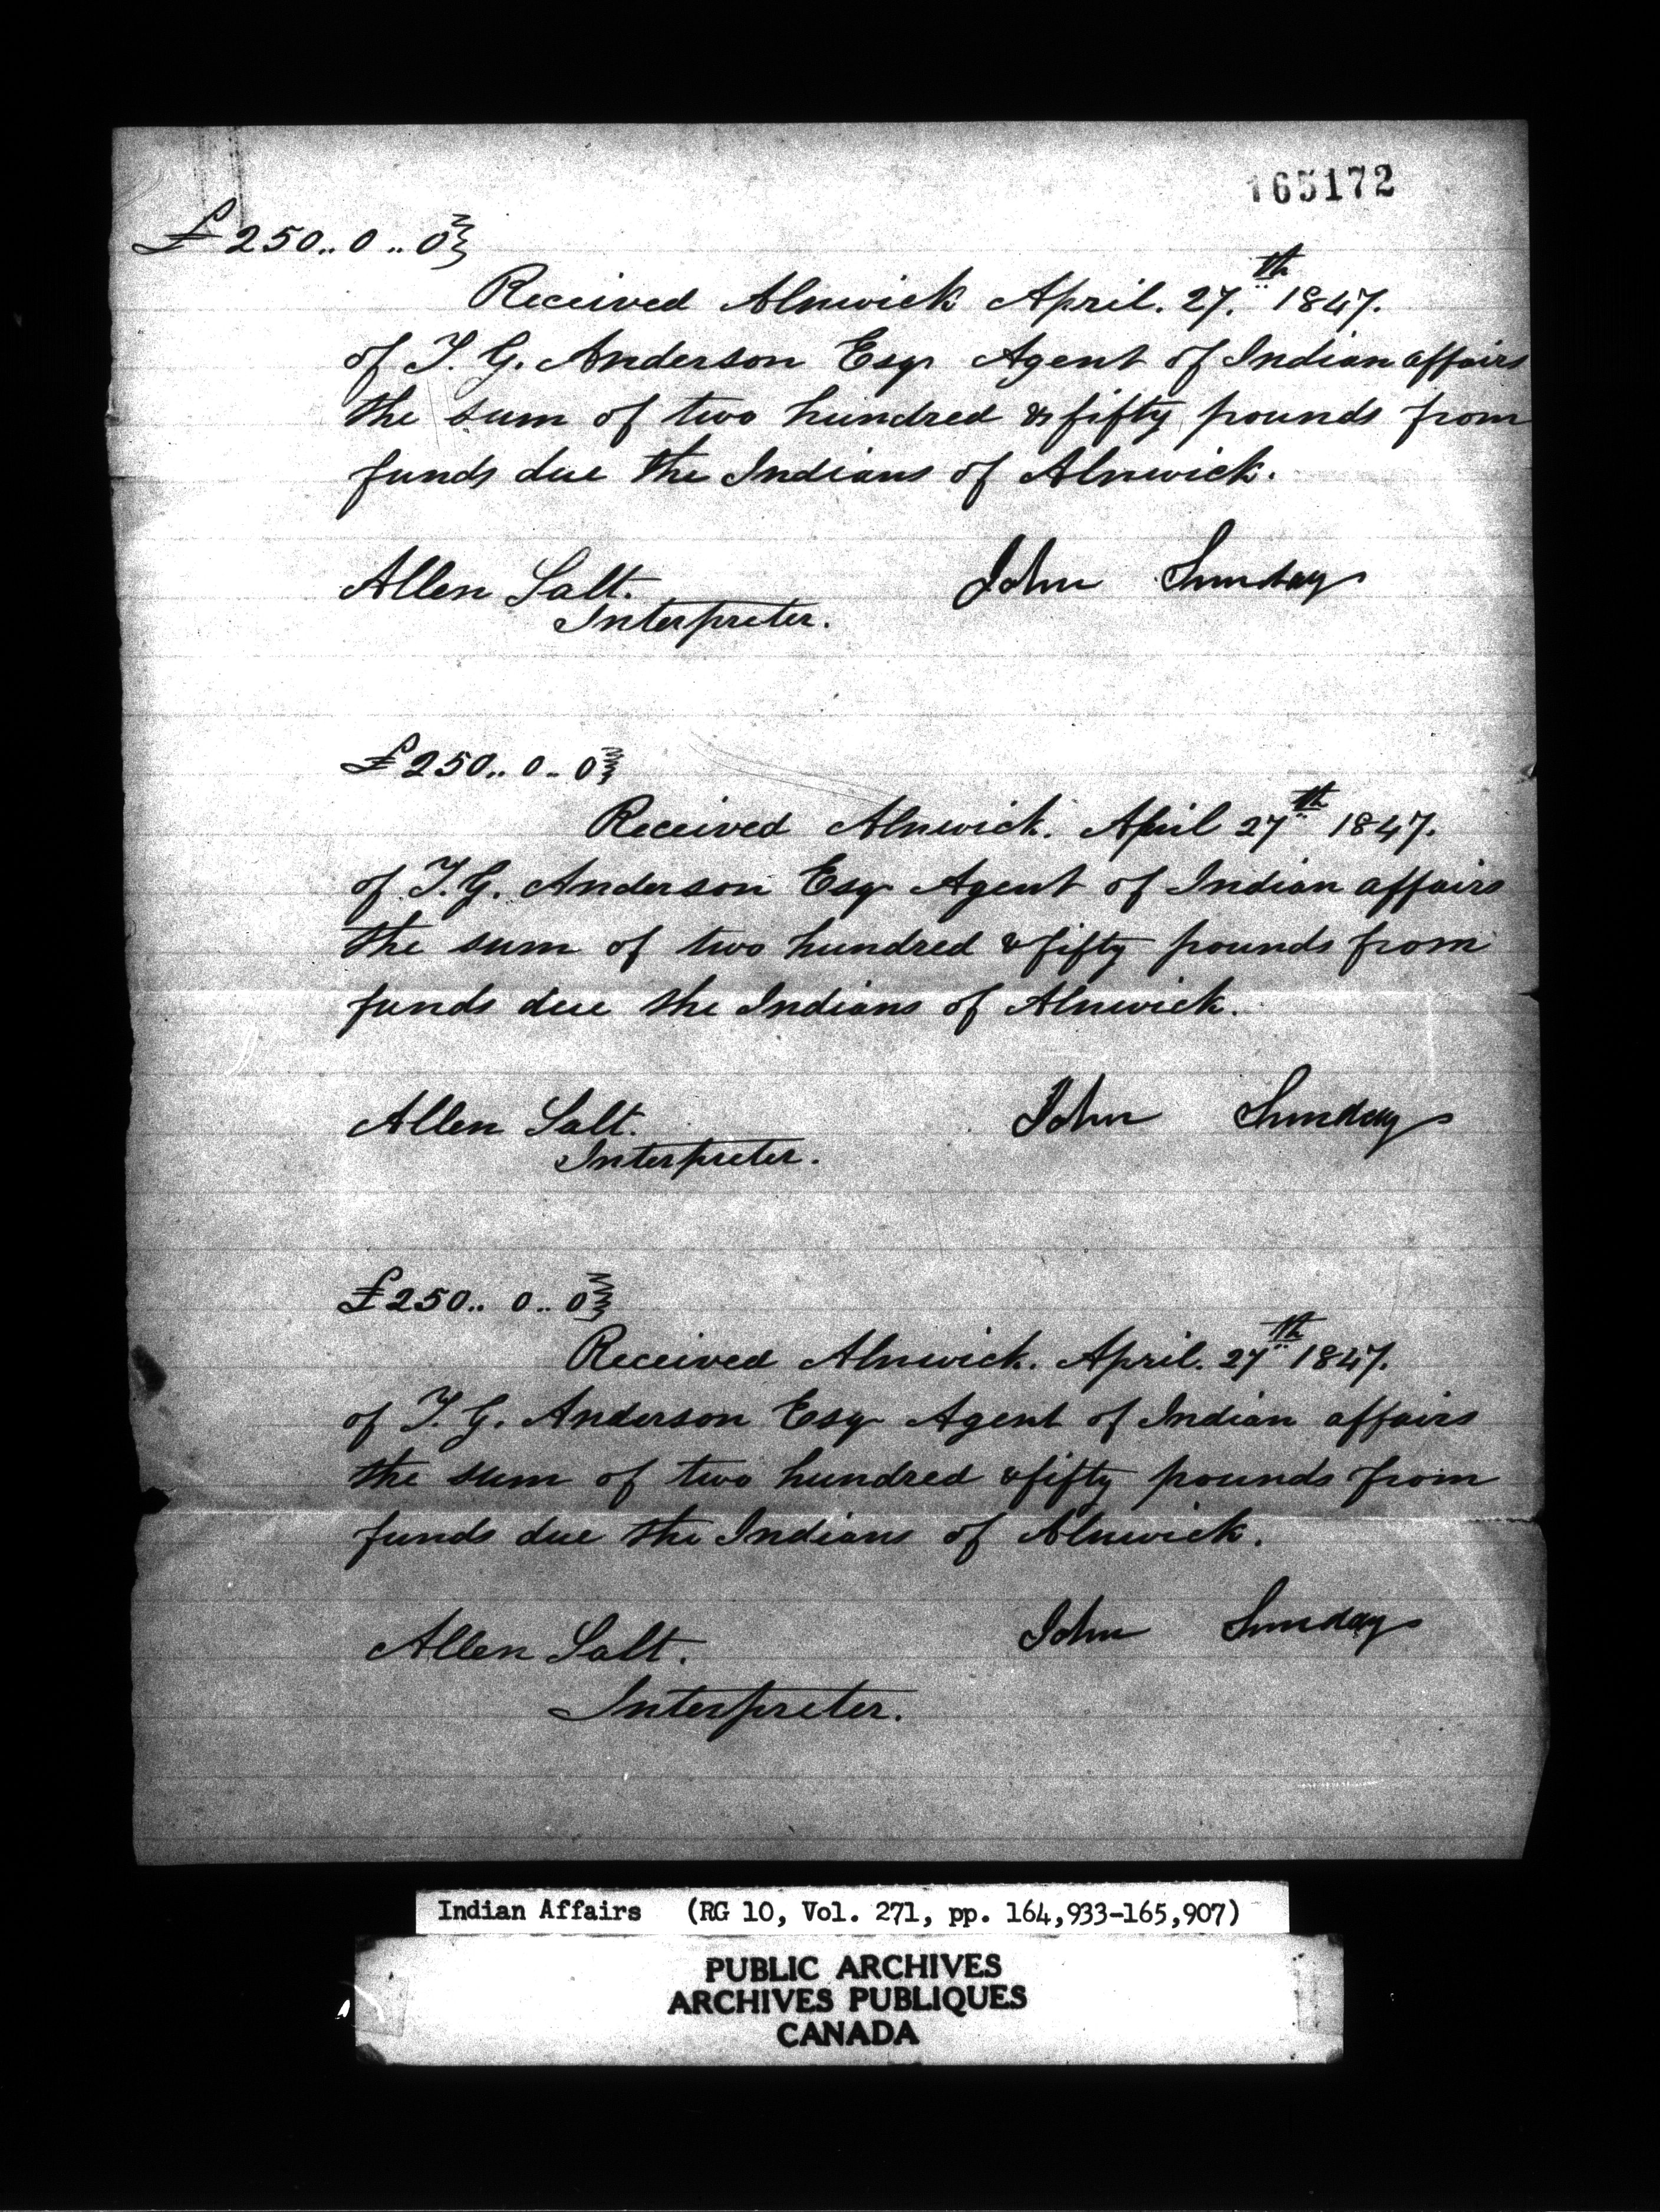 165172
£250..0..0
Received Alnwick April. 27.th 1847.
of T. G. Anderson Esqr Agent of Indian affairs
the sum of two hundred & fifty pounds from
funds due the Indians of Alnwick.
Allen Salt. John Sunday
Interpreter.
£250..0..0
Received Alnwick. April 27th 1847.
of T. G. Anderson Esqr Agent of Indian affairs
the sum of two hundred & fifty pounds from
funds due the Indians of Alnwick.
Allen Salt. John Sunday
Interpreter.
£250..0..0
Received Alnwick. April. 27th 1847.
of T. G. Anderson Esqr Agent of Indian affairs
the sum of two hundred & fifty pounds from
funds due the Indians of Alnwick.
Allen Salt. John Sunday
Interpreter.
Indian Affairs (RG 10, Vol. 271, pp. 164,933-165,907)
PUBLIC ARCHIVES
ARCHIVES PUBLIQUES
CANADA